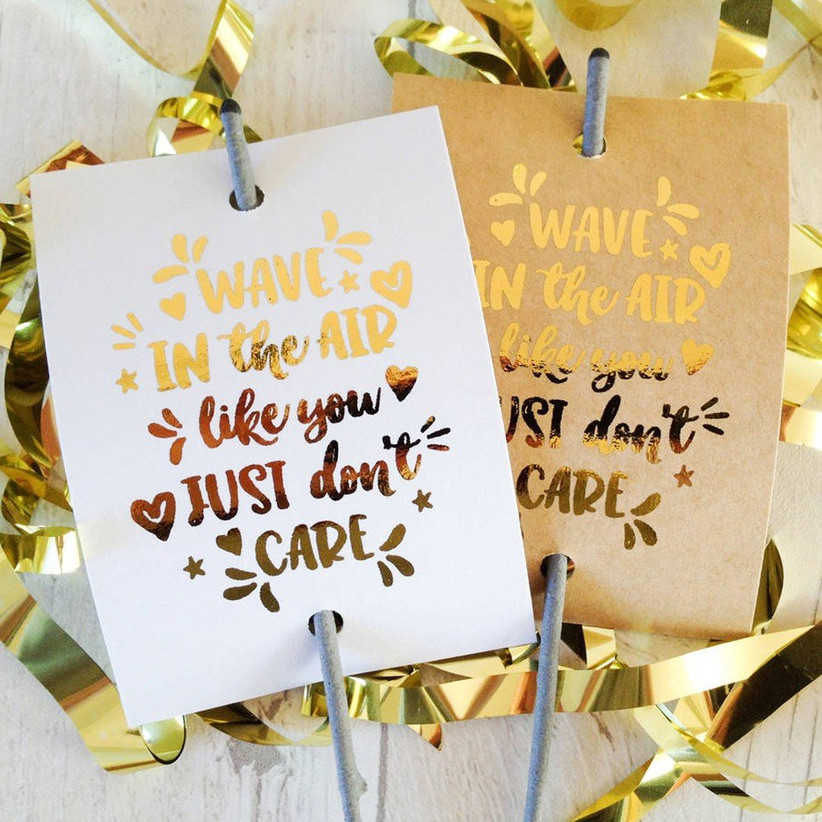 WAVE
IN the AIR
like you
JUST don't
CARE
WAVE
IN the AIR
like you
JUST don't
CARE